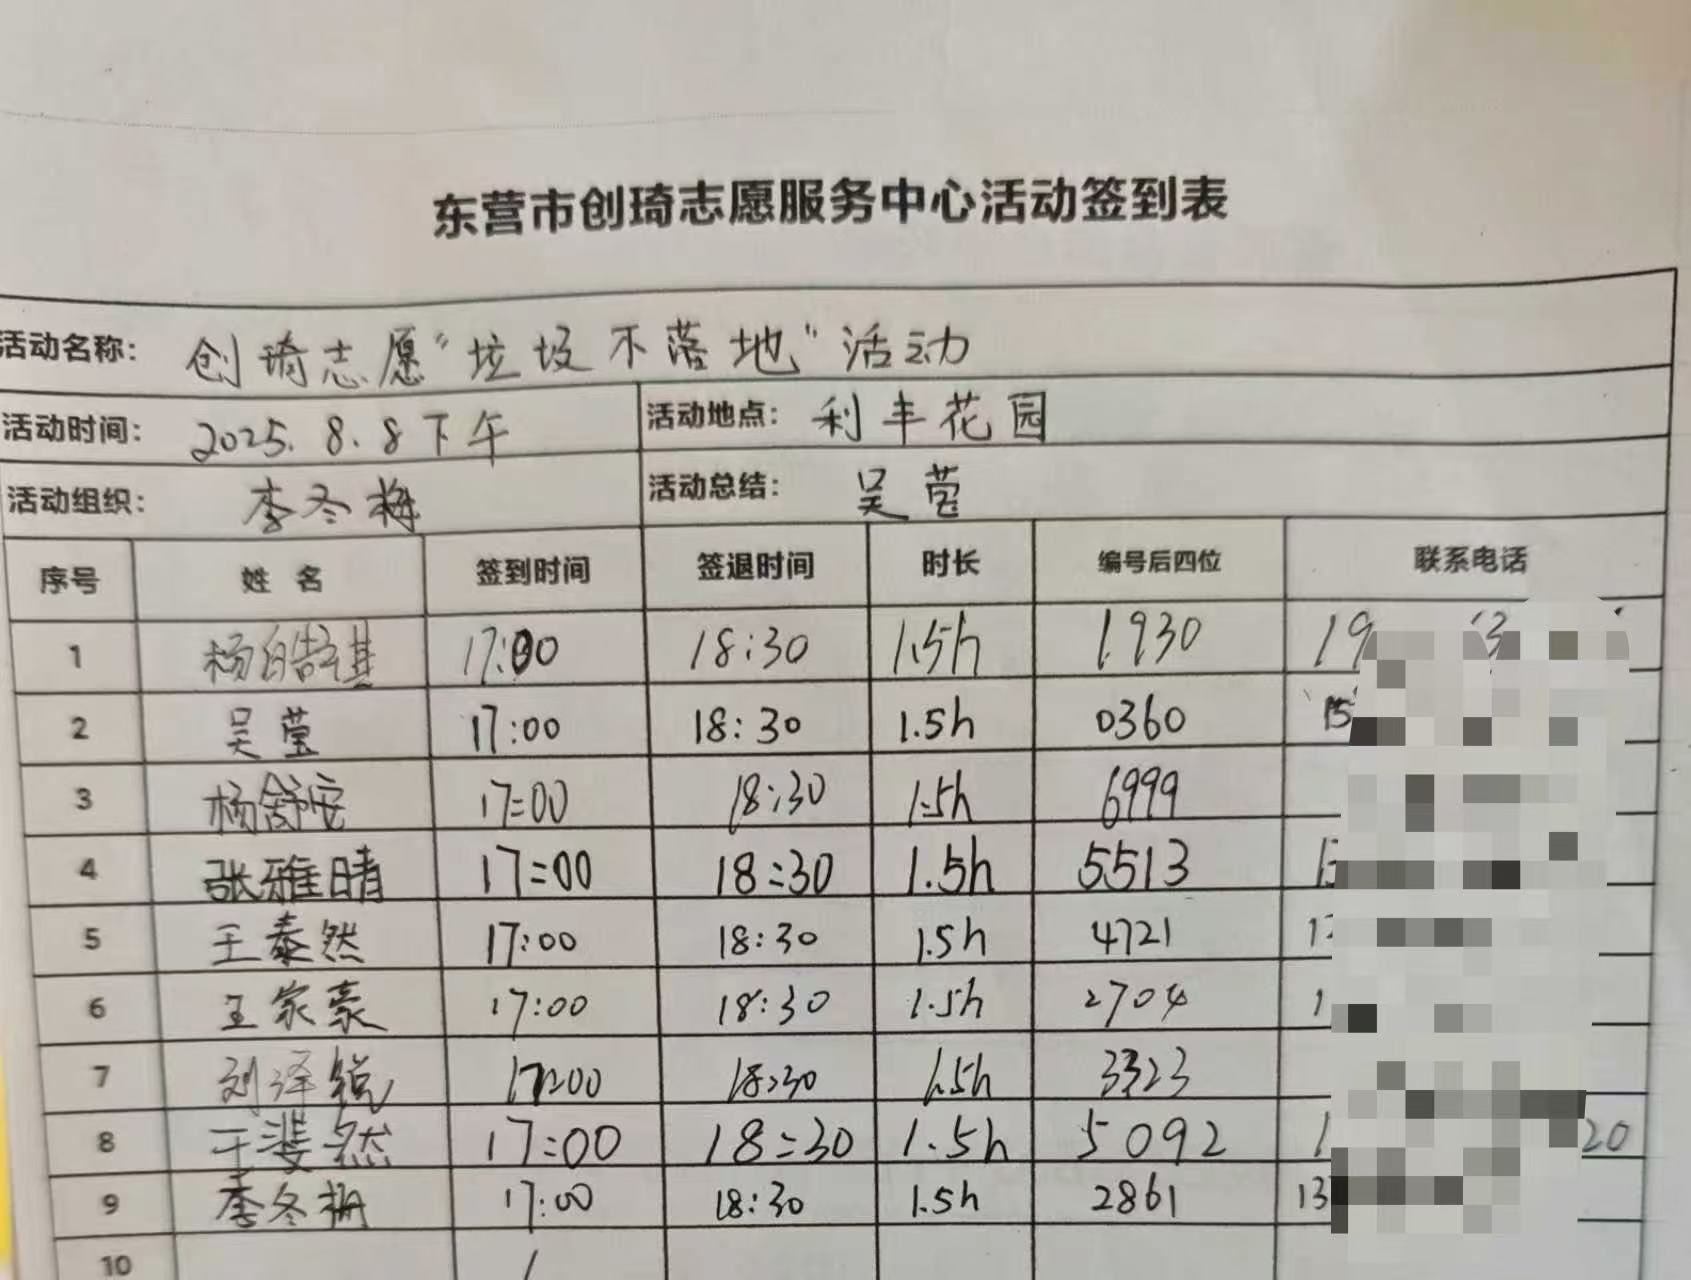 东营市创琦志愿服务中心活动签到表
活动名称： 创琦志愿“垃圾不落地”活动
活动时间： 2025.8.8下午 活动地点： 利丰花园
活动组织： 李冬梅 活动总结： 吴莹
序号 姓名 签到时间 签退时间 时长 编号后四位 联系电话
1 杨皓琪 17:00 18:30 1.5h 1930 19
2 吴莹 17:00 18:30 1.5h 0360 15
3 杨舒安 17:00 18:30 1.5h 6999
4 张雅晴 17:00 18:30 1.5h 5513 13
5 王泰然 17:00 18:30 1.5h 4721 1
6 王家豪 17:00 18:30 1.5h 2704 1
7 刘泽锐 17:00 18:30 1.5h 3323
8 于斐然 17:00 18:30 1.5h 5092 1 20
9 李冬梅 17:00 18:30 1.5h 2861 13
10